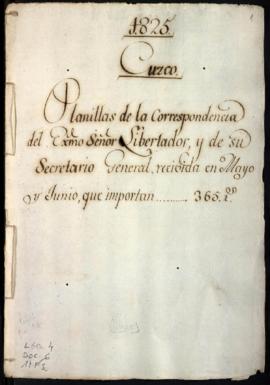 1825.
Cuzco.
Planillas de la Correspondencia
del Exmo Señor Libertador, y de su
Secretario General, recivida en Mayo
y Junio, que importan......... 365. p.s
L.612. 4
DOC. 6